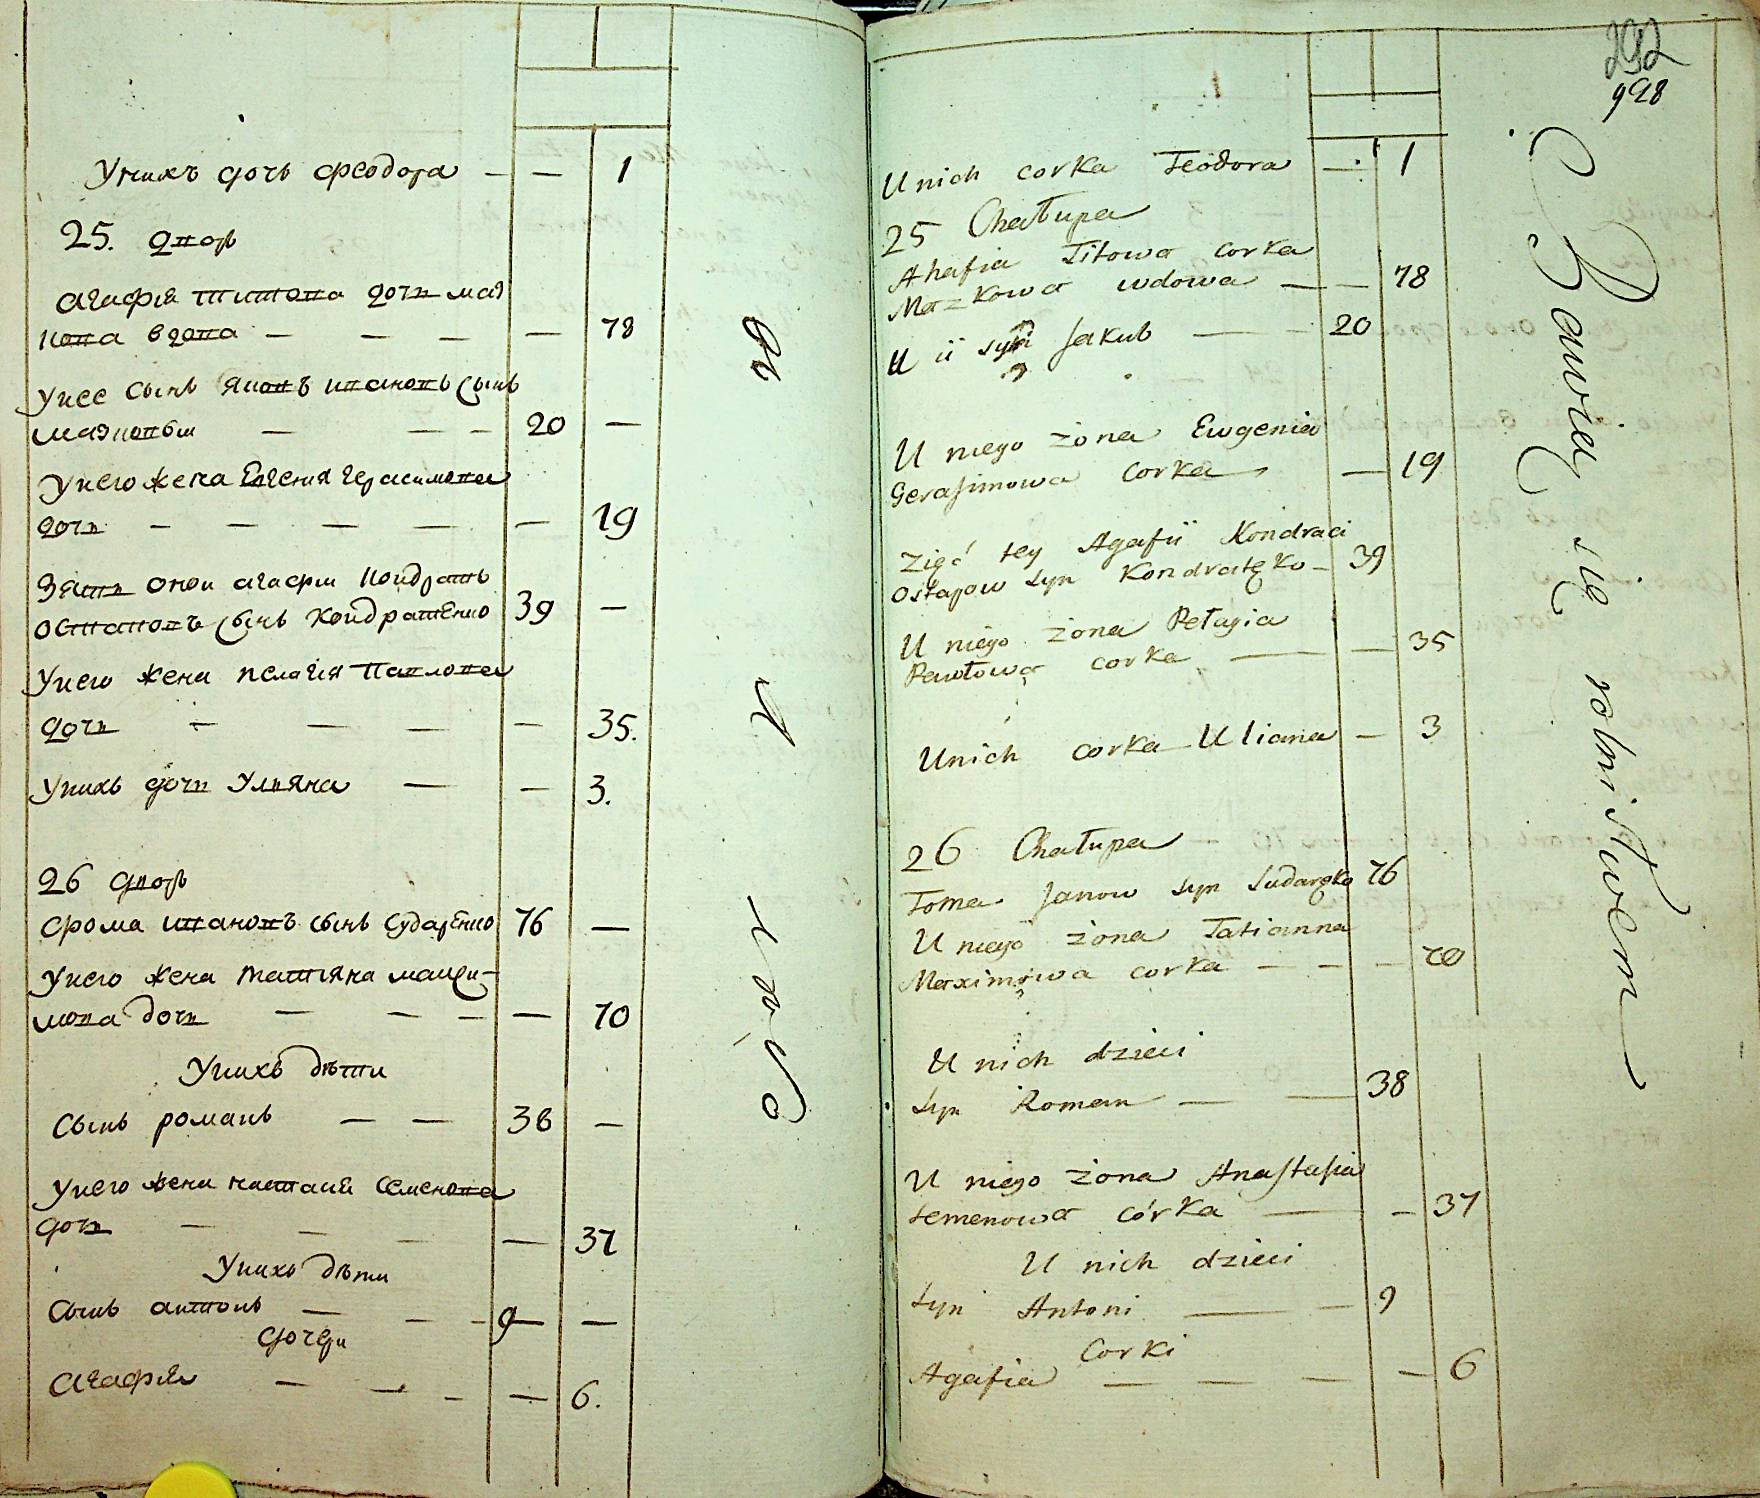 Унихъ дочь феодора — — 1
25. двор
агафiя титова дочь маз
кова вдова — — — — 78
унее сынъ яковъ ивановъ сынъ
мазковъ — — — 20 —
унего жена Евгения герасимова
дочь — — — — — 19
Зять оной агафiи Кондрать
остаповъ сынъ Кондратенко 39 —
унего жена пелагiя Павлова
дочь — — — — 35.
унихъ дочь Ульяна — — 3.
26 двор
фома ивановъ сынъ Сударенко 76 —
унего жена татiяна макси-
мова дочь — — — — 70
Унихъ дѣти
Сынъ романъ — — 38 —
унего жена настасiя Семенова
дочь — — — — 37
Унихъ дѣти
Сынъ антонъ — — — 9 —
дочери
агафiя — — — — 6.
292
998
U nich corka Teodora — 1
25 Chałupa
Ahafia Titowa corka
Mazkowa wdowa — — 78
U ii syn Jakub — — 20
U niego żona Ewgenia
Gerasimowa corka — 19
Zięć tey Agafii Kondraci
Ostapow syn Kondratęko — 39
U niego żona Pełagia
Pawłowa corka — — 35
U nich corka Uliana — 3
26 Chałupa
Toma Janow syn Sudaręko 76
U niego żona Tatianna
Maximowa corka — — — 70
U nich dzieci
syn Roman — — 38
U niego żona Anastasia
Semenowa córka — — 37
U nich dzieci
syn Antoni — — 9
Corki
Agafia — — — — 6
Bawią się rolnistwem